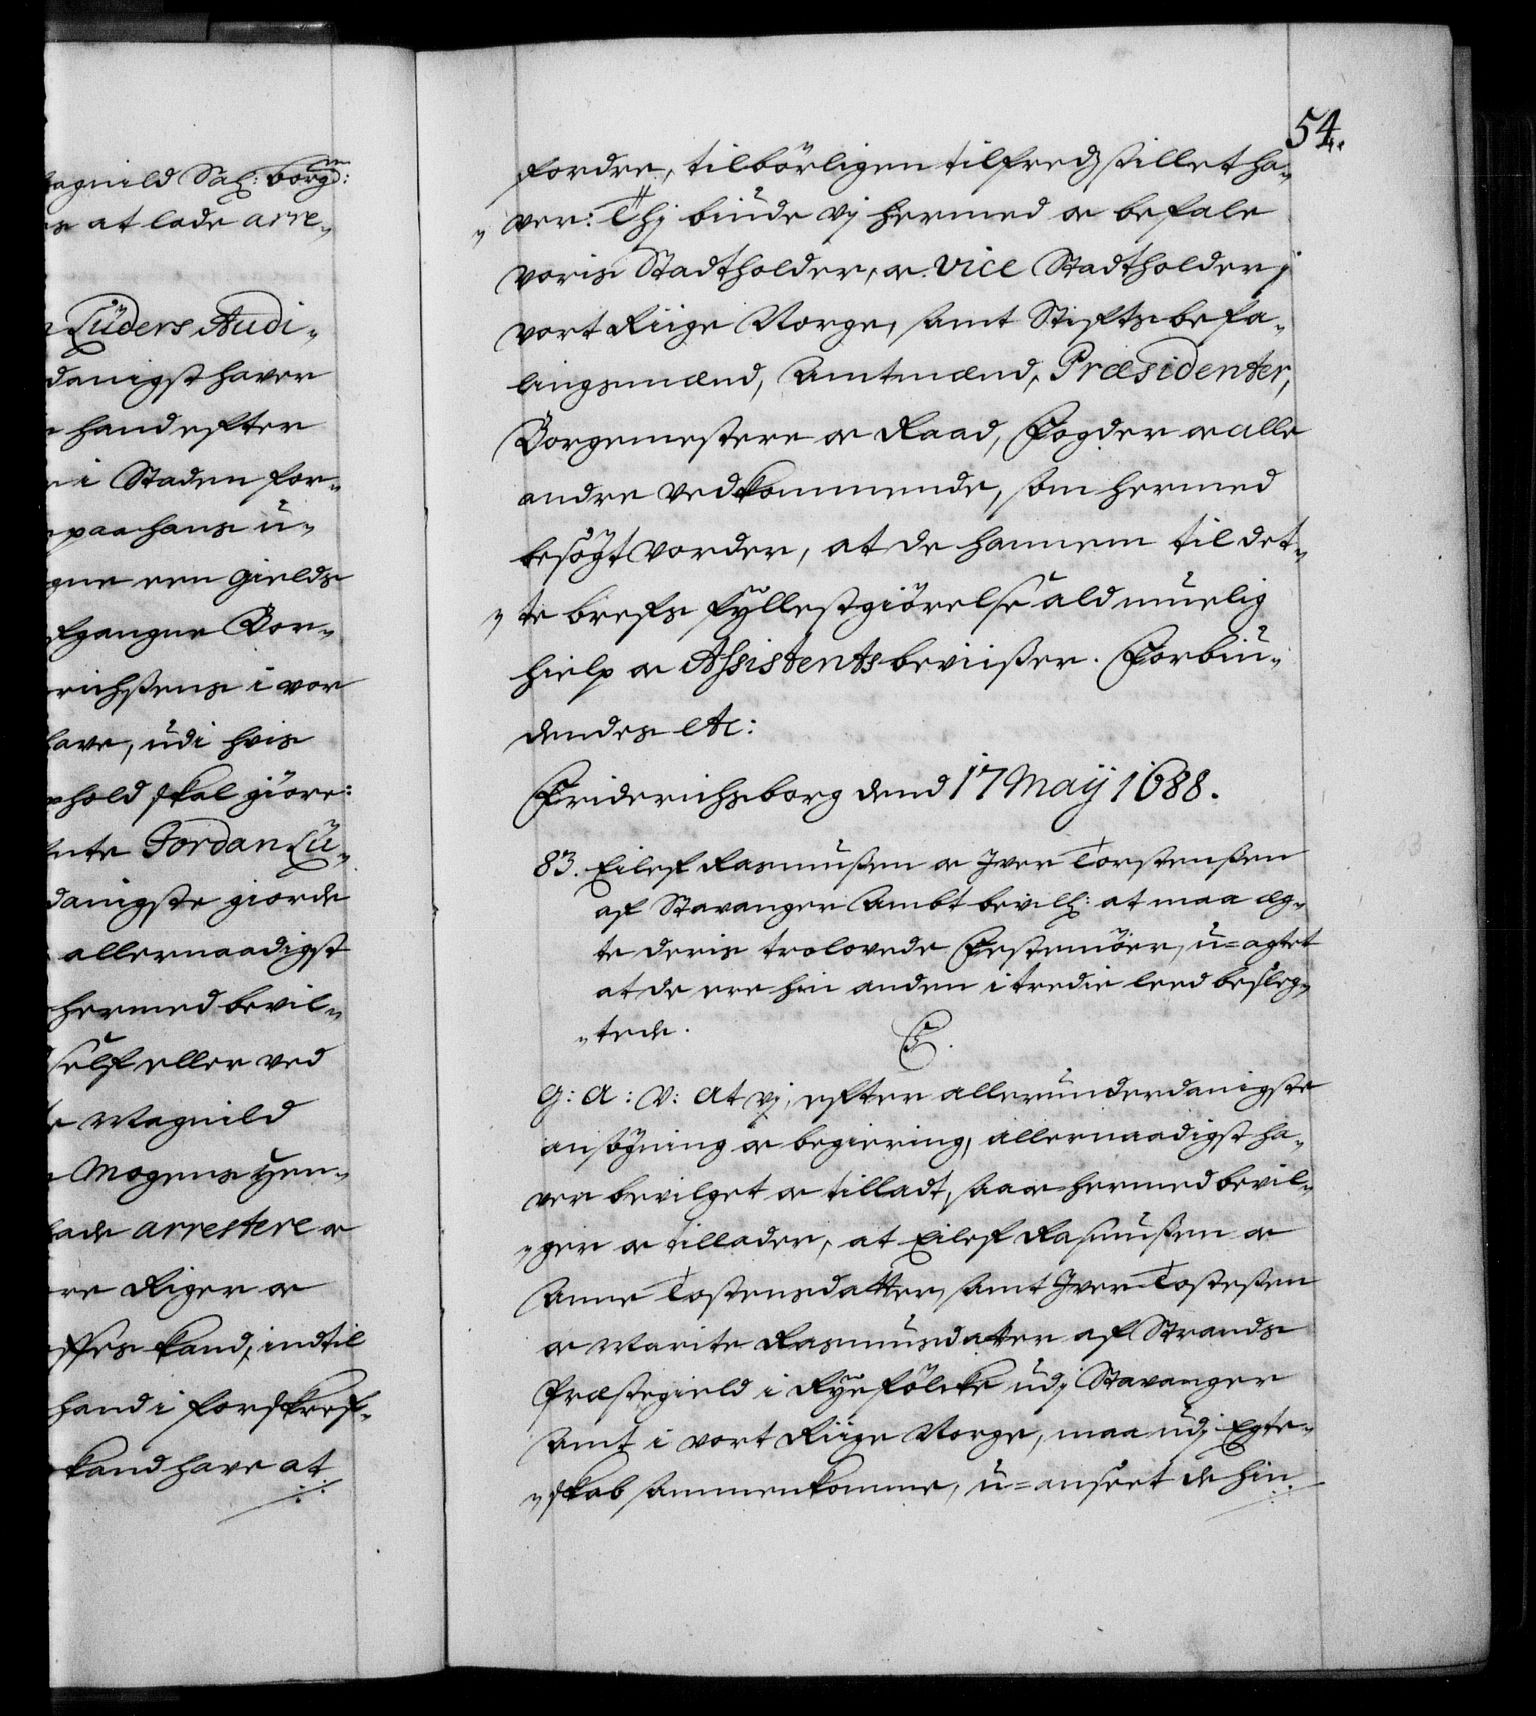 agnild Sal: borgm:
at lade arre„
Lüders Audi„
danigst haver
hand efter
i Staden for„
paa hans u„
gne een gields
efgangne Bor„
richsens i vor
have, udi hvis
hold skal giøre:
Jordan Lü„
danigste giorde
allernaadigst
hermed bevil„
self eller ved
Magnild
Mogens Hen„
lade arrestere og
re Riger og
kand, indtil
hand i forskref„
kand have at
54.
fordre, tilbörligen tilfredsstillet ha„
„ver: Thj biude vj hermed og befale
voris Stadtholder, og vice Stadtholder j
vort Riige Norge, samt Stiftsbefa„
lingsmænd, Amtmænd, Præsidenter,
Borgemestere og Raad, Fogder og alle
andre vedkommende, som hermed
besögt vorder, at de hannem til det„
„te brefs fyllestgiörelse ald muelig
hielp og Assistents beviißer. Forbiu„
dendes etc:
Friderichsborg dend 17 Maij 1688.
83. Eilef Rasmußen og Iver Torstenßen
af Stavanger Ambt bevilg: at maa æg„
te deris trolovede Festemöer, u=agtet
at de ere hin anden i tredie leed besleg„
„tede.
C5.
G: A: V: At vj, efter allerunderdanigste
ansögning og begiering, allernaadigst ha„
ver bevilget og tilladt, saa og hermed bevil„
„ger og tillader, at Eilef Rasmußen og
Anne Tostensdatter, samt Iver Tosteßen
og Marite Rasmusdatter af Strands
Præstegield i Ryefölcke udj Stavanger
Amt i vort Riige Norge, maa udj Egte„
„skab sammenkomme, u=anseet de hin